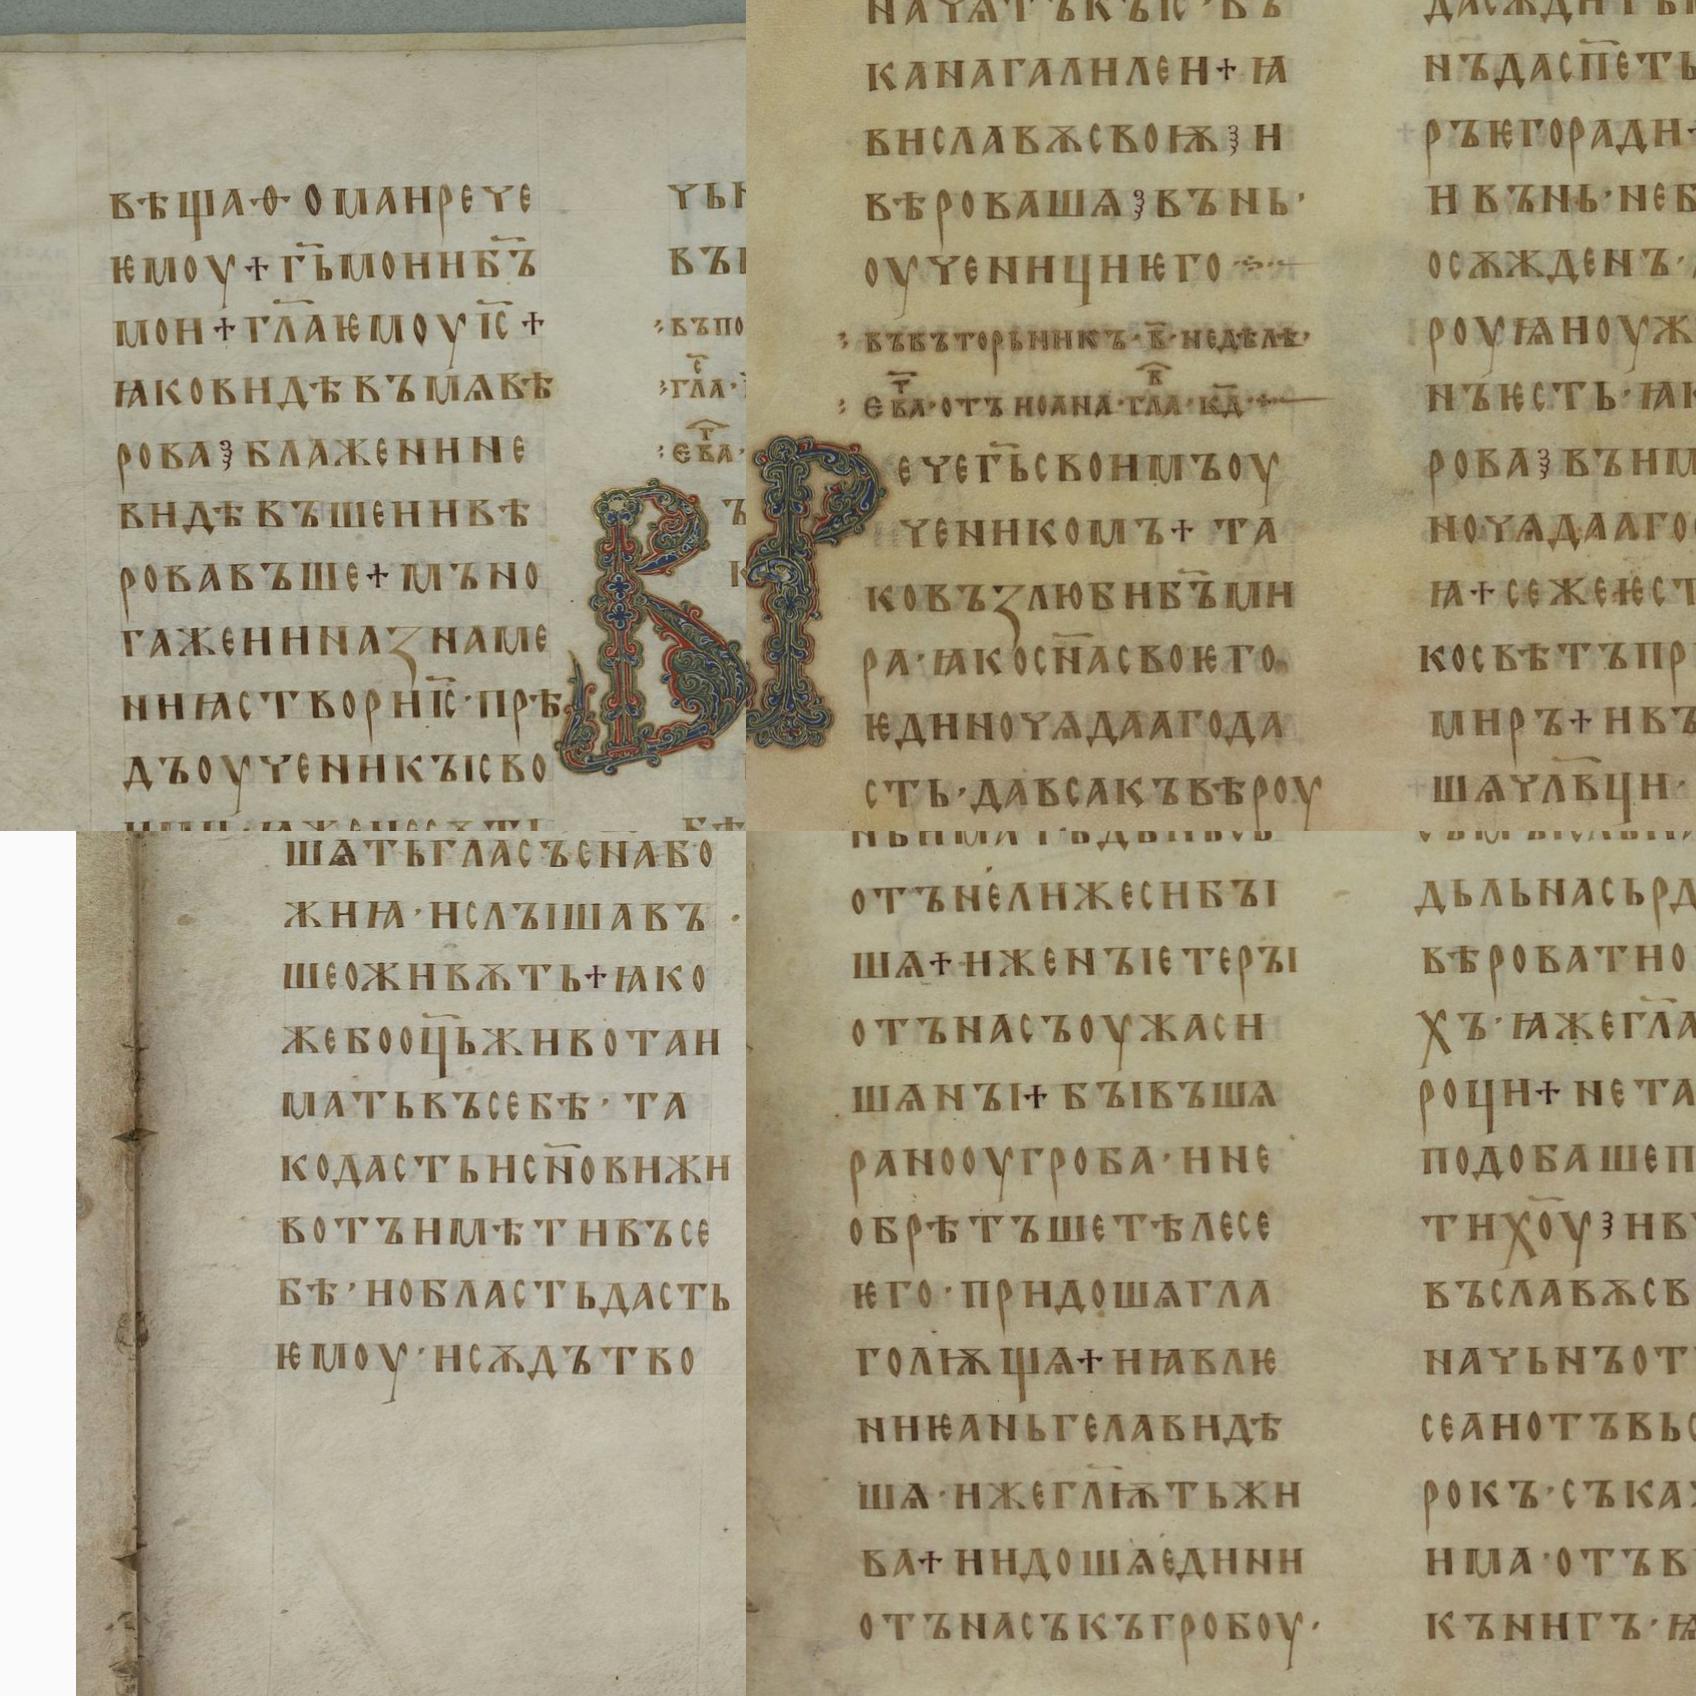 вѣща·ѳ·оманрече
ѥмоу+г҃ьмоиıб҃ъ
мои+гл҃аѥмоуıс҃+
ꙗковидѣвъмѧвѣ
рова⁓блажениıне
видѣвъшеиивѣ
ровавъше+мъно
гажеиıназнаме
ниꙗствориıс҃·прѣ
дъоученикꙑсво
чьн
въı
въпо
гла·
еѵа·
канагалилеи+ꙗ
виславѫсвоѭ⁓и
вѣровашѧ⁓вънь·
оученициѥго
въвъторьникъ·в҃·недѣлѣ·
ев҃а·отъиоана·гла·к҃д·
ечег҃ьсвоимъоу
ченикомъ+та
ковъзлюбиб҃ъми
ра·ꙗкос҃насвоѥго
ѥдиночѧдаагода
сть·давсакъвѣроу
нъдасп҃еть
ръѥгоради+
ивънь·неб
осѫжденъ·
роуѩиоуж
нъѥсть·ꙗк
рова⁓въим
ночѧдааго
ꙗ+сежеѥст
косвѣтъпр
миръ+ивъ
шѧчл҃вци·
шѧтьгласъс҃набо
жиꙗ·ислꙑшавъ·
шеоживѫть+ꙗко
жебооц҃ьживотаи
матьвъсебѣ·та
кодастьис҃новижи
вотъимѣтивъсе
бѣ·иобластьдасть
ѥмоу·исѫдътво
отънелижесибꙑ
шѧ+ижеиꙑетерꙑ
отънасъоужаси
шѧнꙑ+бꙑвъшѧ
ранооугроба·ине
обрѣтъшетѣлесе
ѥго·придошѧгла
голѭщѧ+иꙗвле
ниѥаньгелавидѣ
шѧ·ижегл҃ѭтьжи
ва+иидошѧедини
отънасъкъгробоу·
дьльнасьрд
вѣроватıо
хъ·ꙗжегл҃а
роци+нета
подобашеп
тих҃оу⁓ивъ
въславѫсв
начьнъот
сеаиотъвьс
рокъ·съказ
има·отъв
кънигъ·ꙗ